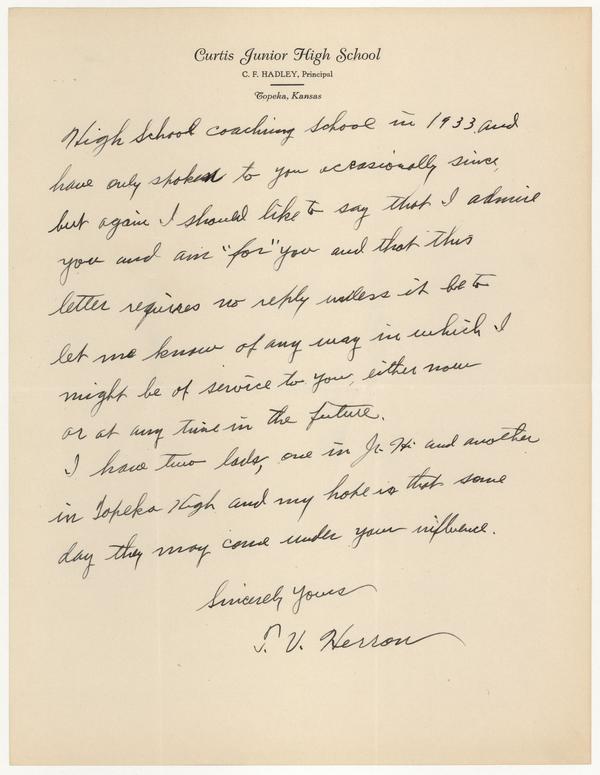 Curtis Junior High School
C. F. HADLEY, Principal
Topeka, Kansas
High School coaching school in 1933 and
have only spoken to you occasionally since,
but again I should like to say that I admire
you and am "for" you and that this
letter requires no reply unless it be to
let me know of any way in which I
might be of service to you, either now
or at any time in the future.
I have two lads, one in Jr. Hi and another
in Topeka High and my hope is that some
day they may come under your influence.
Sincerely Yours
T. V. Herron